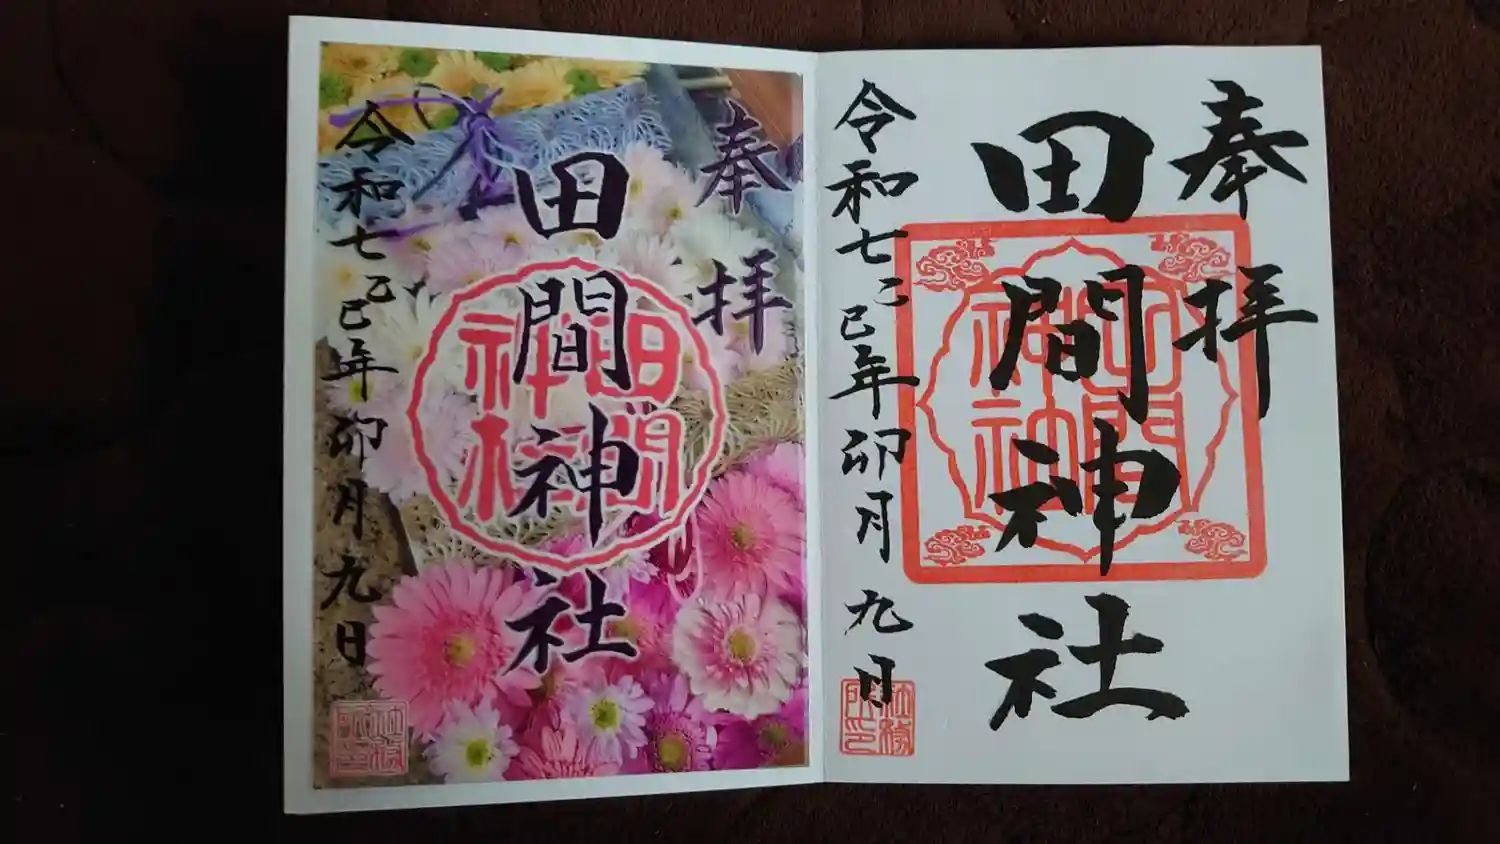 奉拝
田間神社
令和七乙巳年卯月九日
田間神社
社務所印
奉拝
田間神社
令和七乙巳年卯月九日
田間神社
社務所印